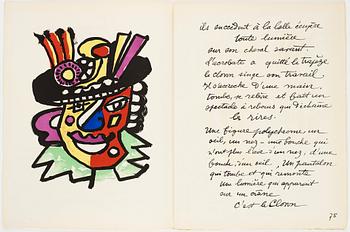 ils succèdent à la belle écuyère
toute lumière
sur son cheval savant.
L'acrobate a quitté le trapèze
le clown singe son travail,
s'accroche d'une main,
tombe, se relève et fait un
spectacle à rebours qui déchaîne
les rires.
Une figure polychrome, un
œil, un nez — une bouche qui
n'ont plus l'air d'un nez, d'une
bouche, d'un œil. Un pantalon
qui tombe et qui remonte
une lumière qui apparait
sur un crâne
C'est le Clown
78